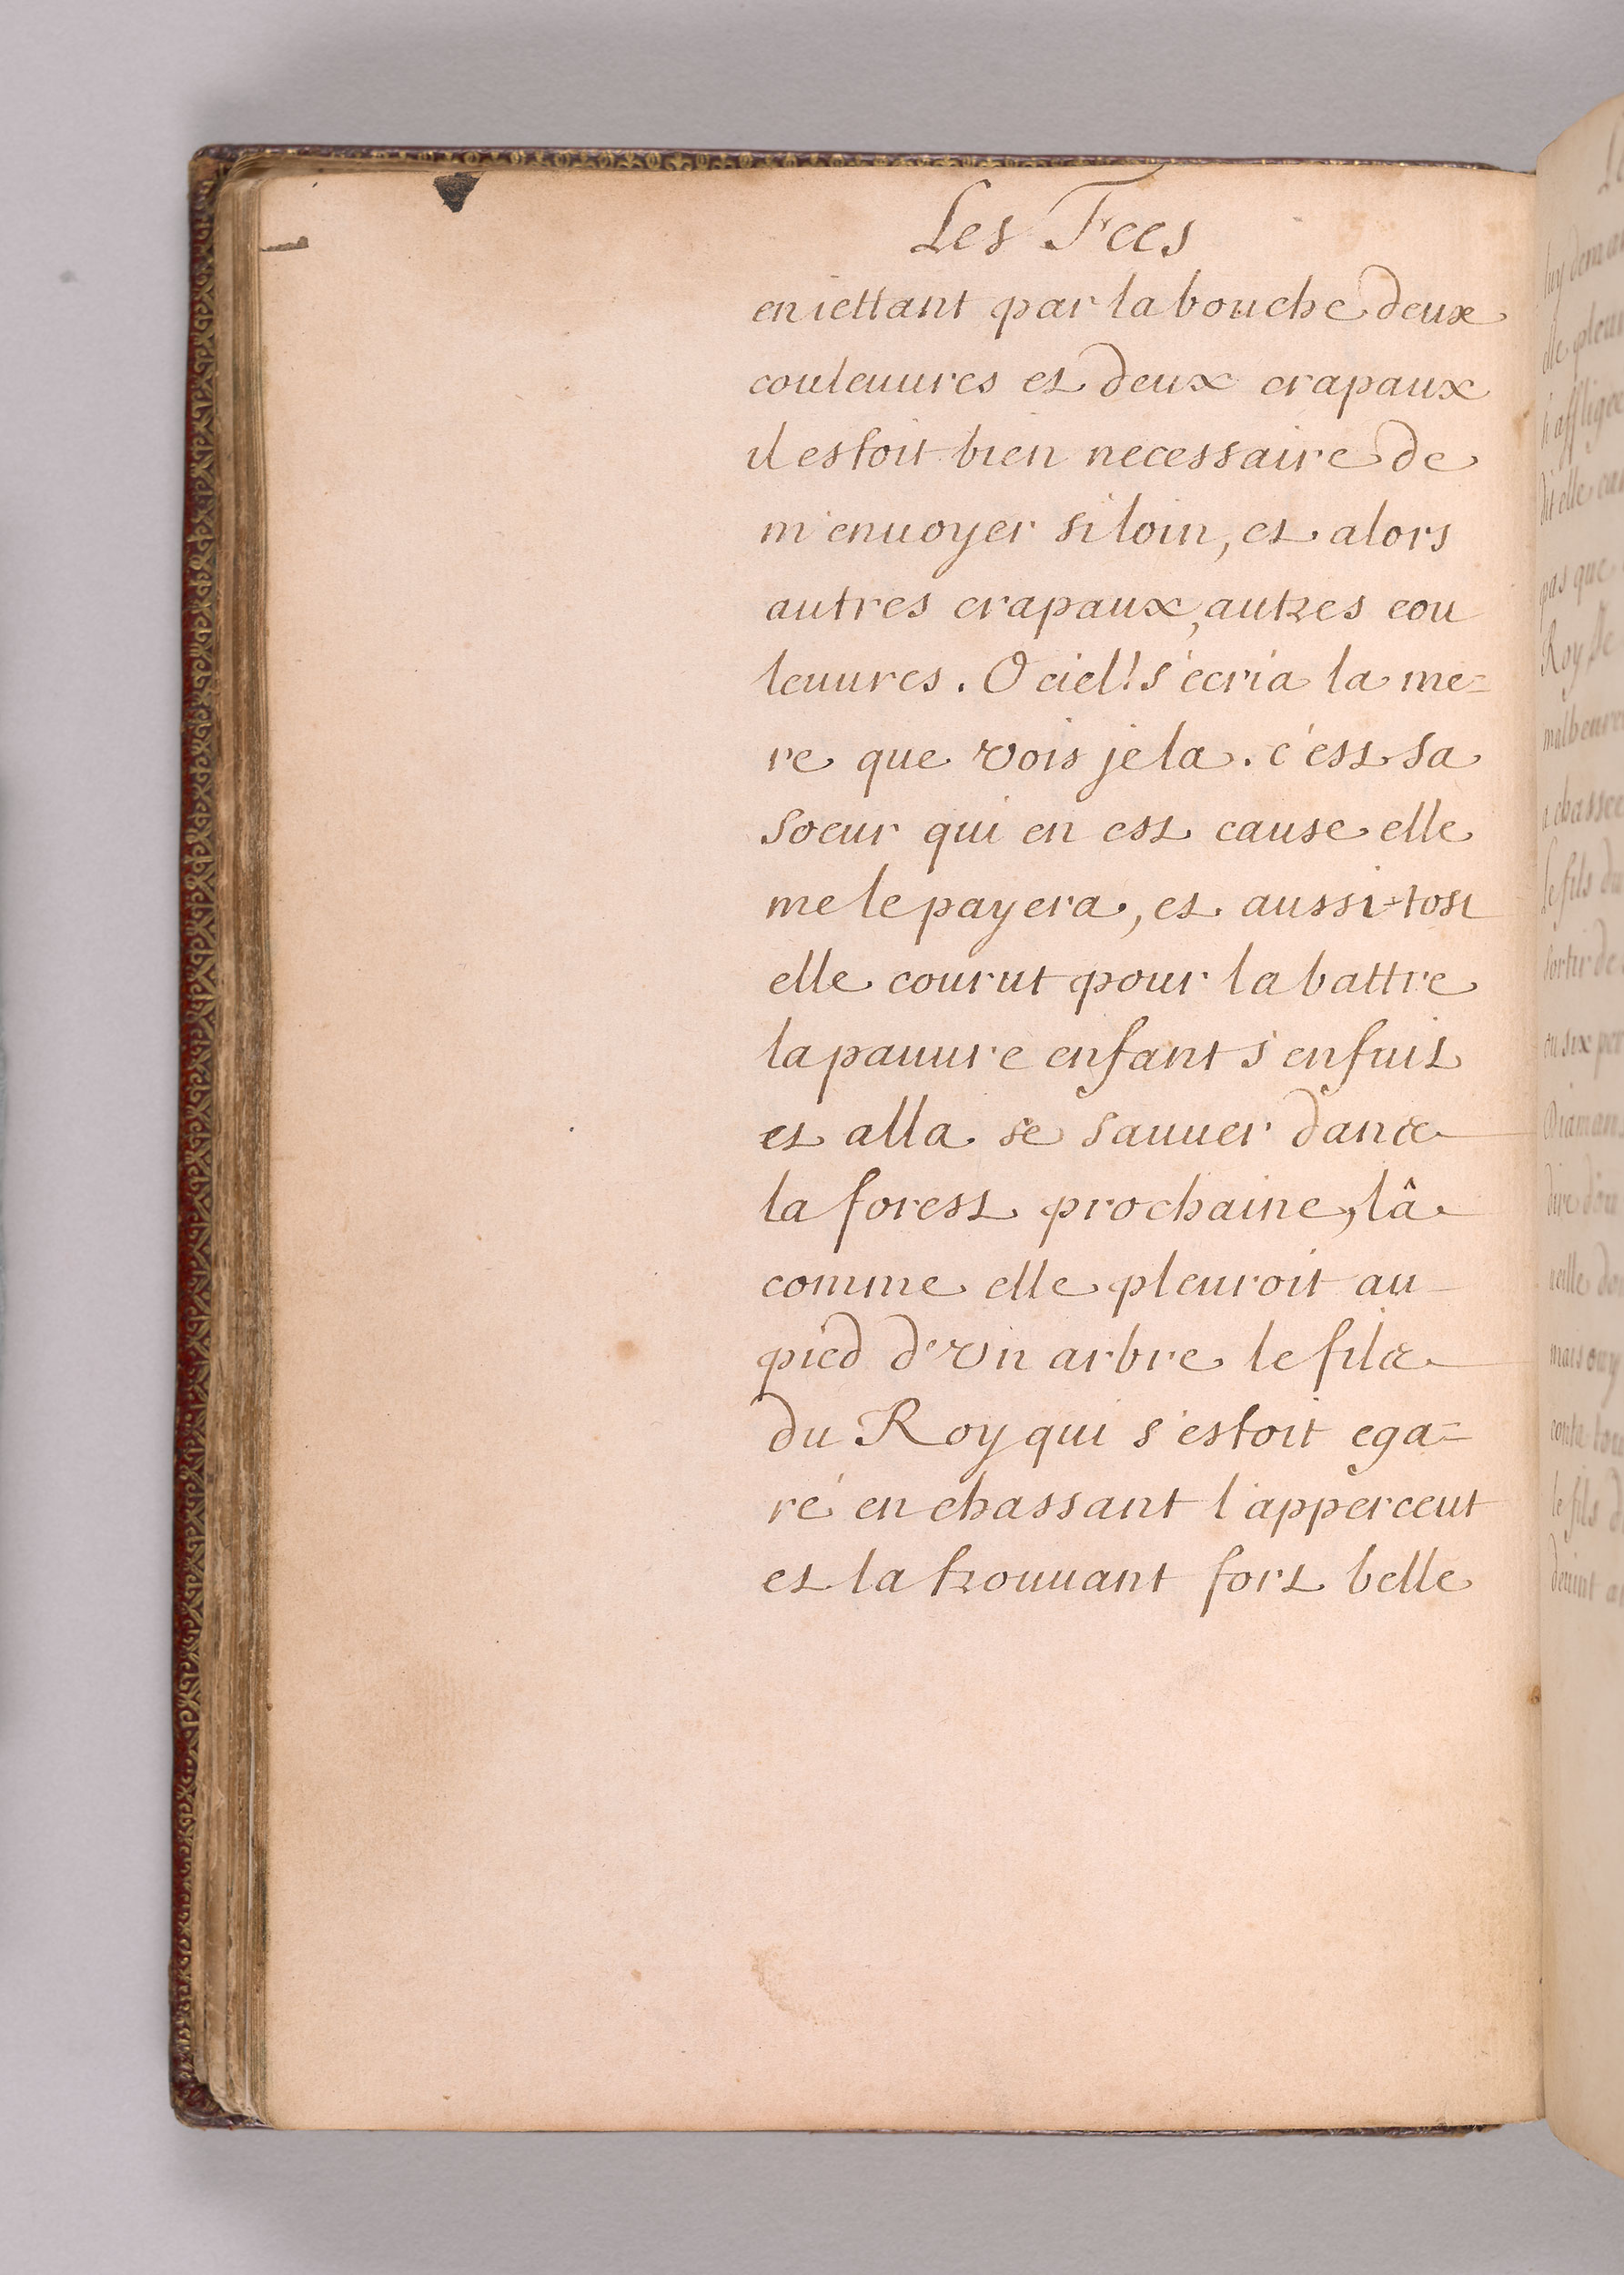 Les Fees
en iettant par la bouche deux
couleuures et deux crapaux
il estoit bien necessaire de
m'enuoyer si loin, et alors
autres crapaux, autres cou
leuures. O ciel! s'écria la me=
re que vois je la. c'est sa
soeur qui en est cause elle
me le payera, et aussi-tost
elle courut pour la battre
la pauure enfant s'enfuit
et alla se sauuer dans
la forest prochaine, lâ
comme elle pleuroit au
pied d'vn arbre le fils
du Roy qui s'estoit ega=
ré en chassant l'apperceut
et la trouuant fort belle